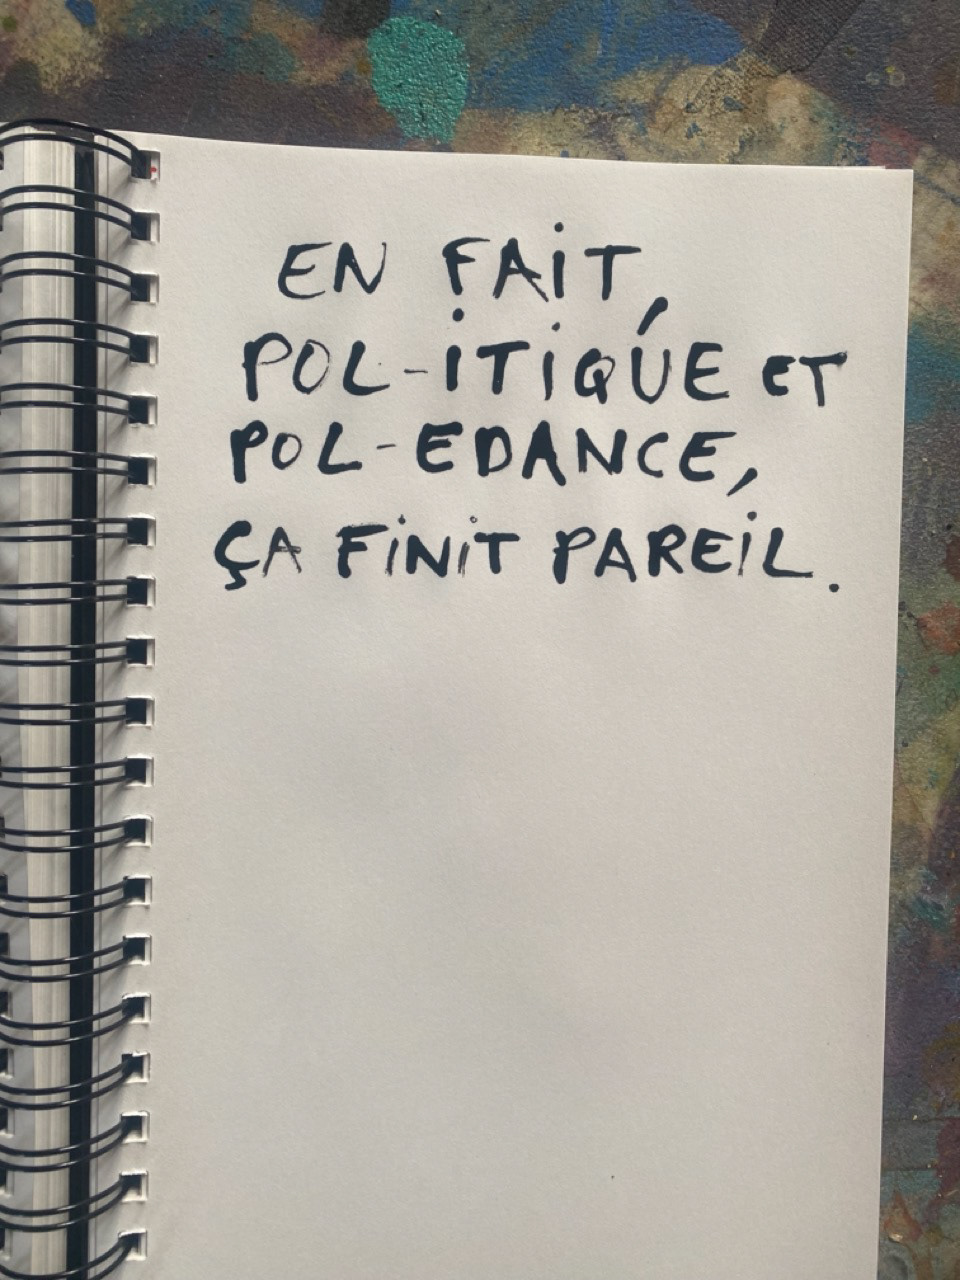 EN FAIT,
POL-ITIQUE ET
POL-EDANCE,
ÇA FINIT PAREIL.